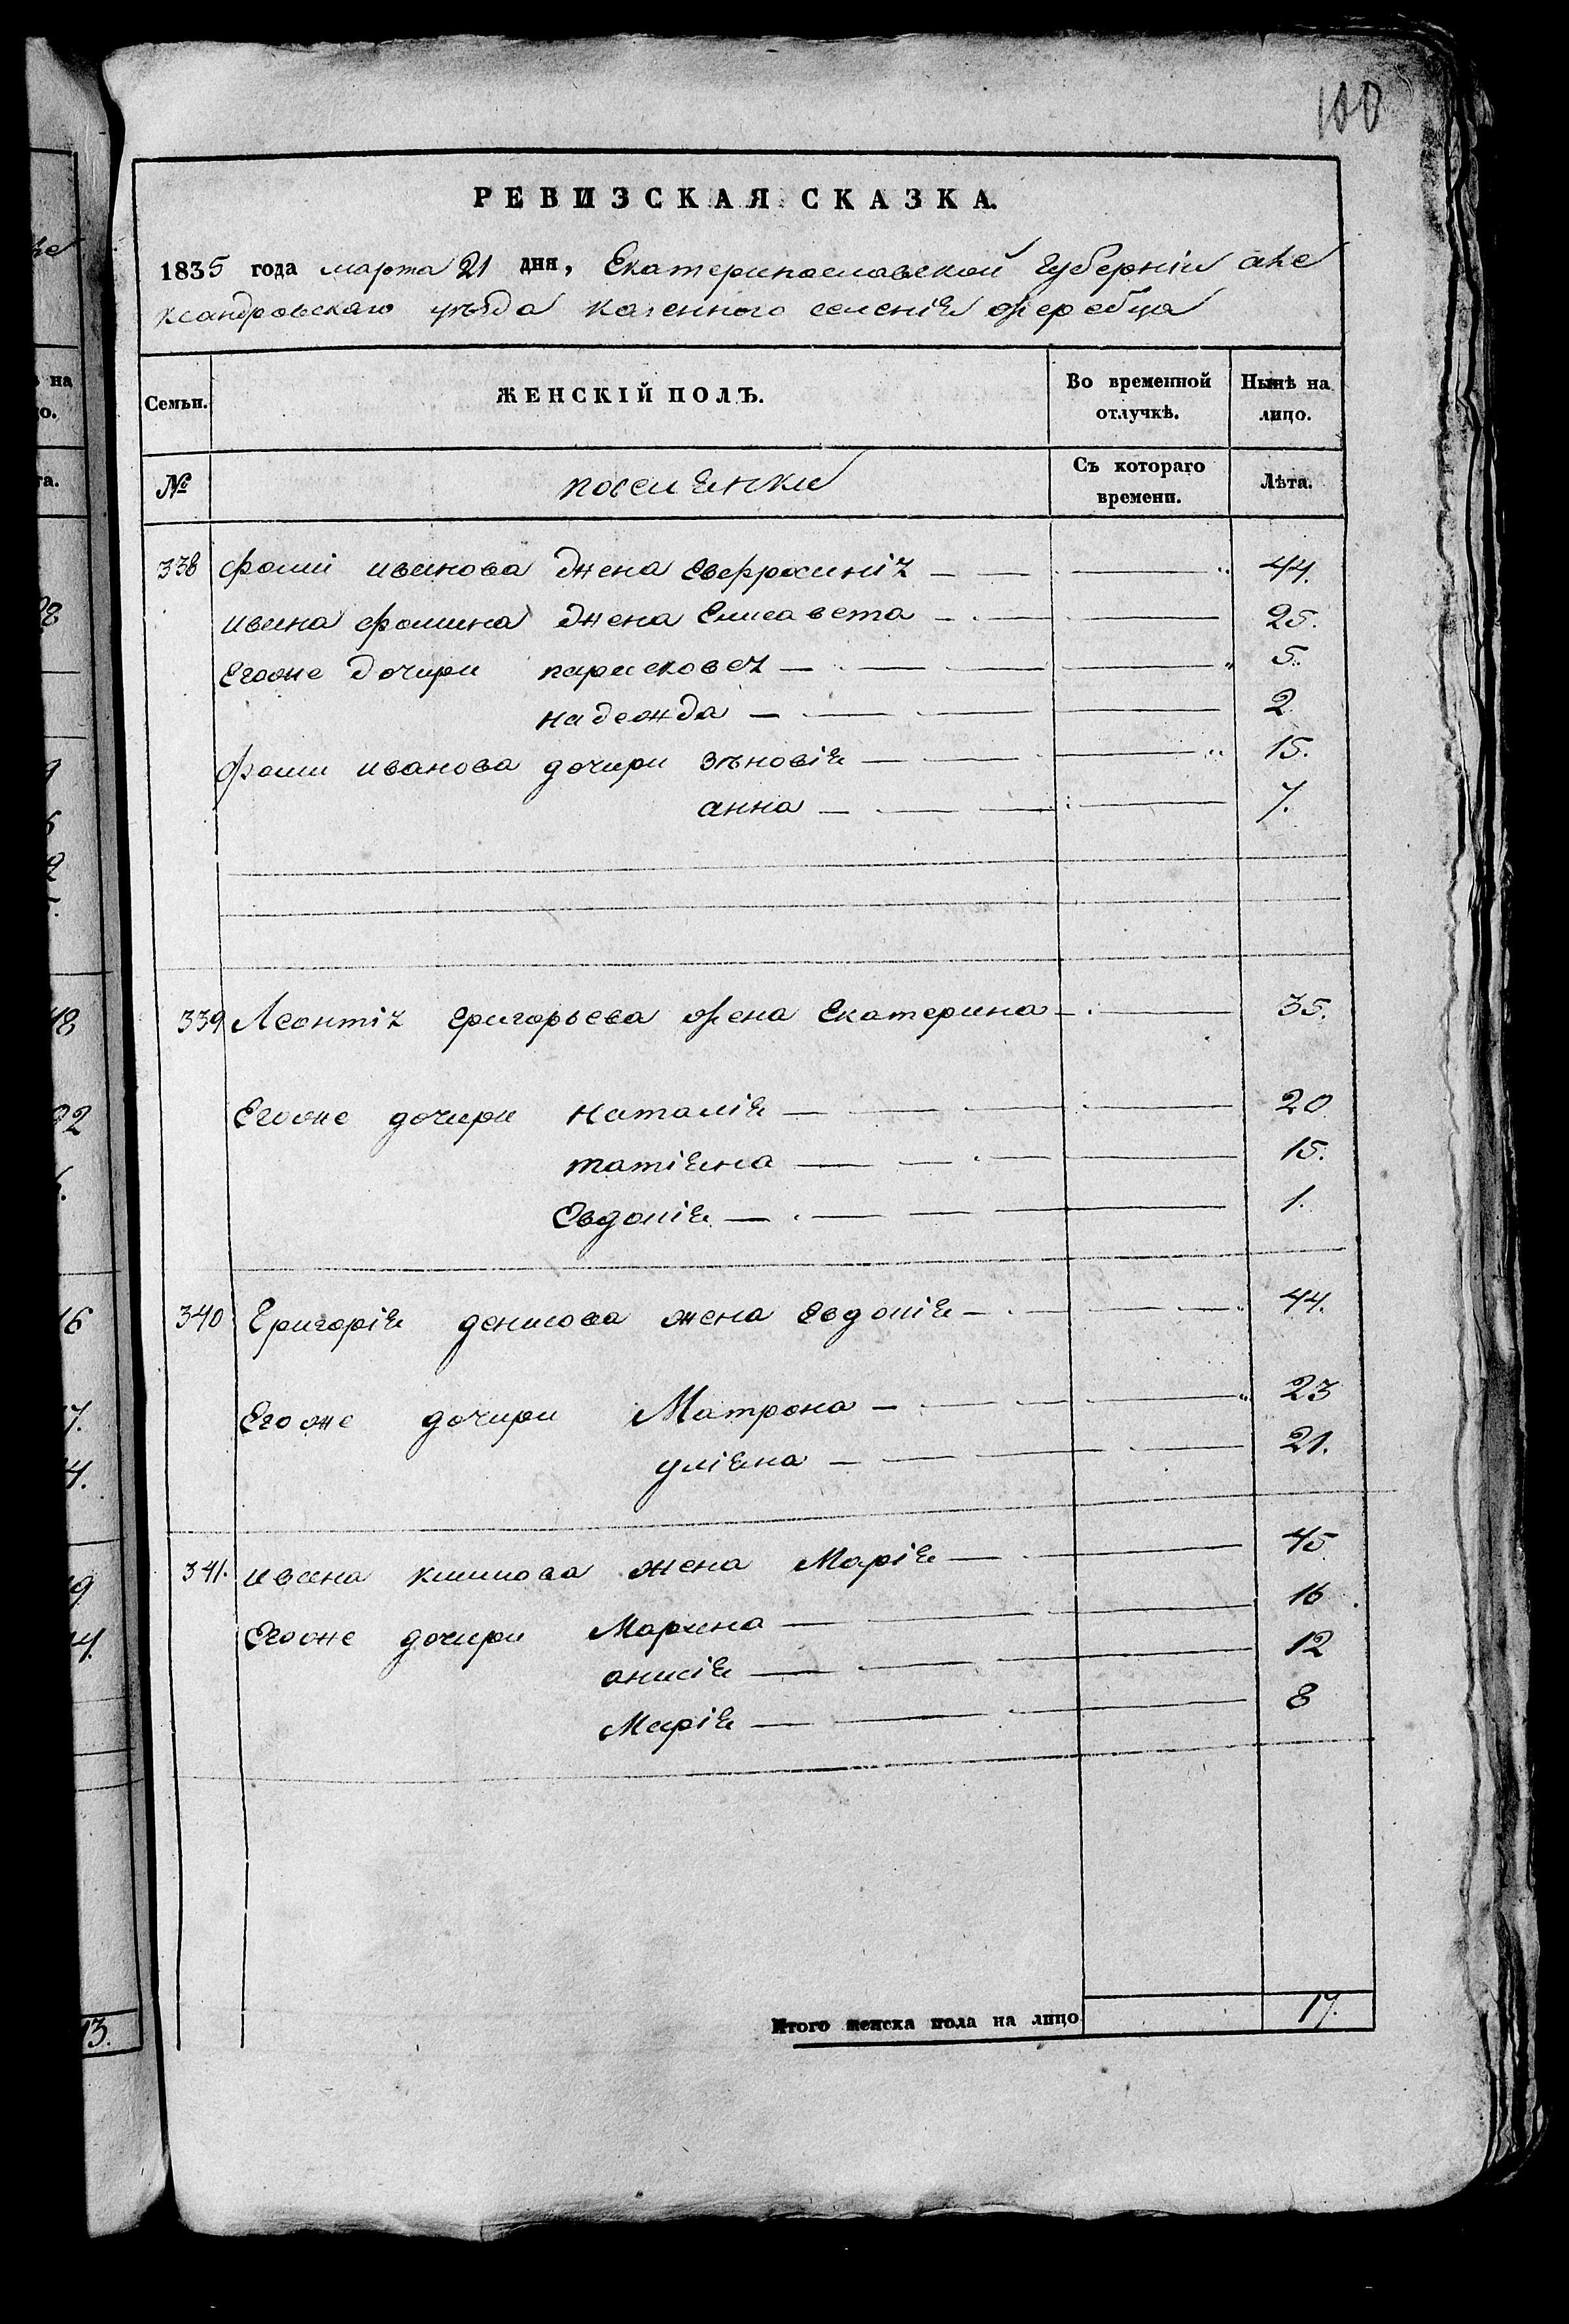 100
РЕВИЗСКАЯ СКАЗКА.
1835 года марта 21 дня, Екатеринославской губерніи але
ксандровскаго уѣзда казенного селенія жеребца
Семьи. ЖЕНСКІЙ ПОЛЪ. Во временной отлучкѣ. Нынѣ на лицо.
№ поселянки Съ котораго времени. Лѣта.
338 фомы иванова жена Евфросинія — — — 44.
ивана фомина жена Елисавета — — 25.
Егоже дочери парасковея — — — 5.
надежда — — — 2
фомы иванова дочери зѣновія — — — 15.
анна — — — 7.
339 Леонтія григорьева жена Екатерина — — 35.
Егоже дочери наталія — — — 20
татіяна — — — 15.
Евдокія — — — 1.
340 григорія денисова жена Евдокія — — — 44.
Егоже дочери Матрона — — — 23
уліяна — — — 21.
341. ивана климова жена Марія — — 45
Егоже дочери Марина — — — 16
анисія — — — 12
Марія — — — 8
Итого женска пола на лицо 17.